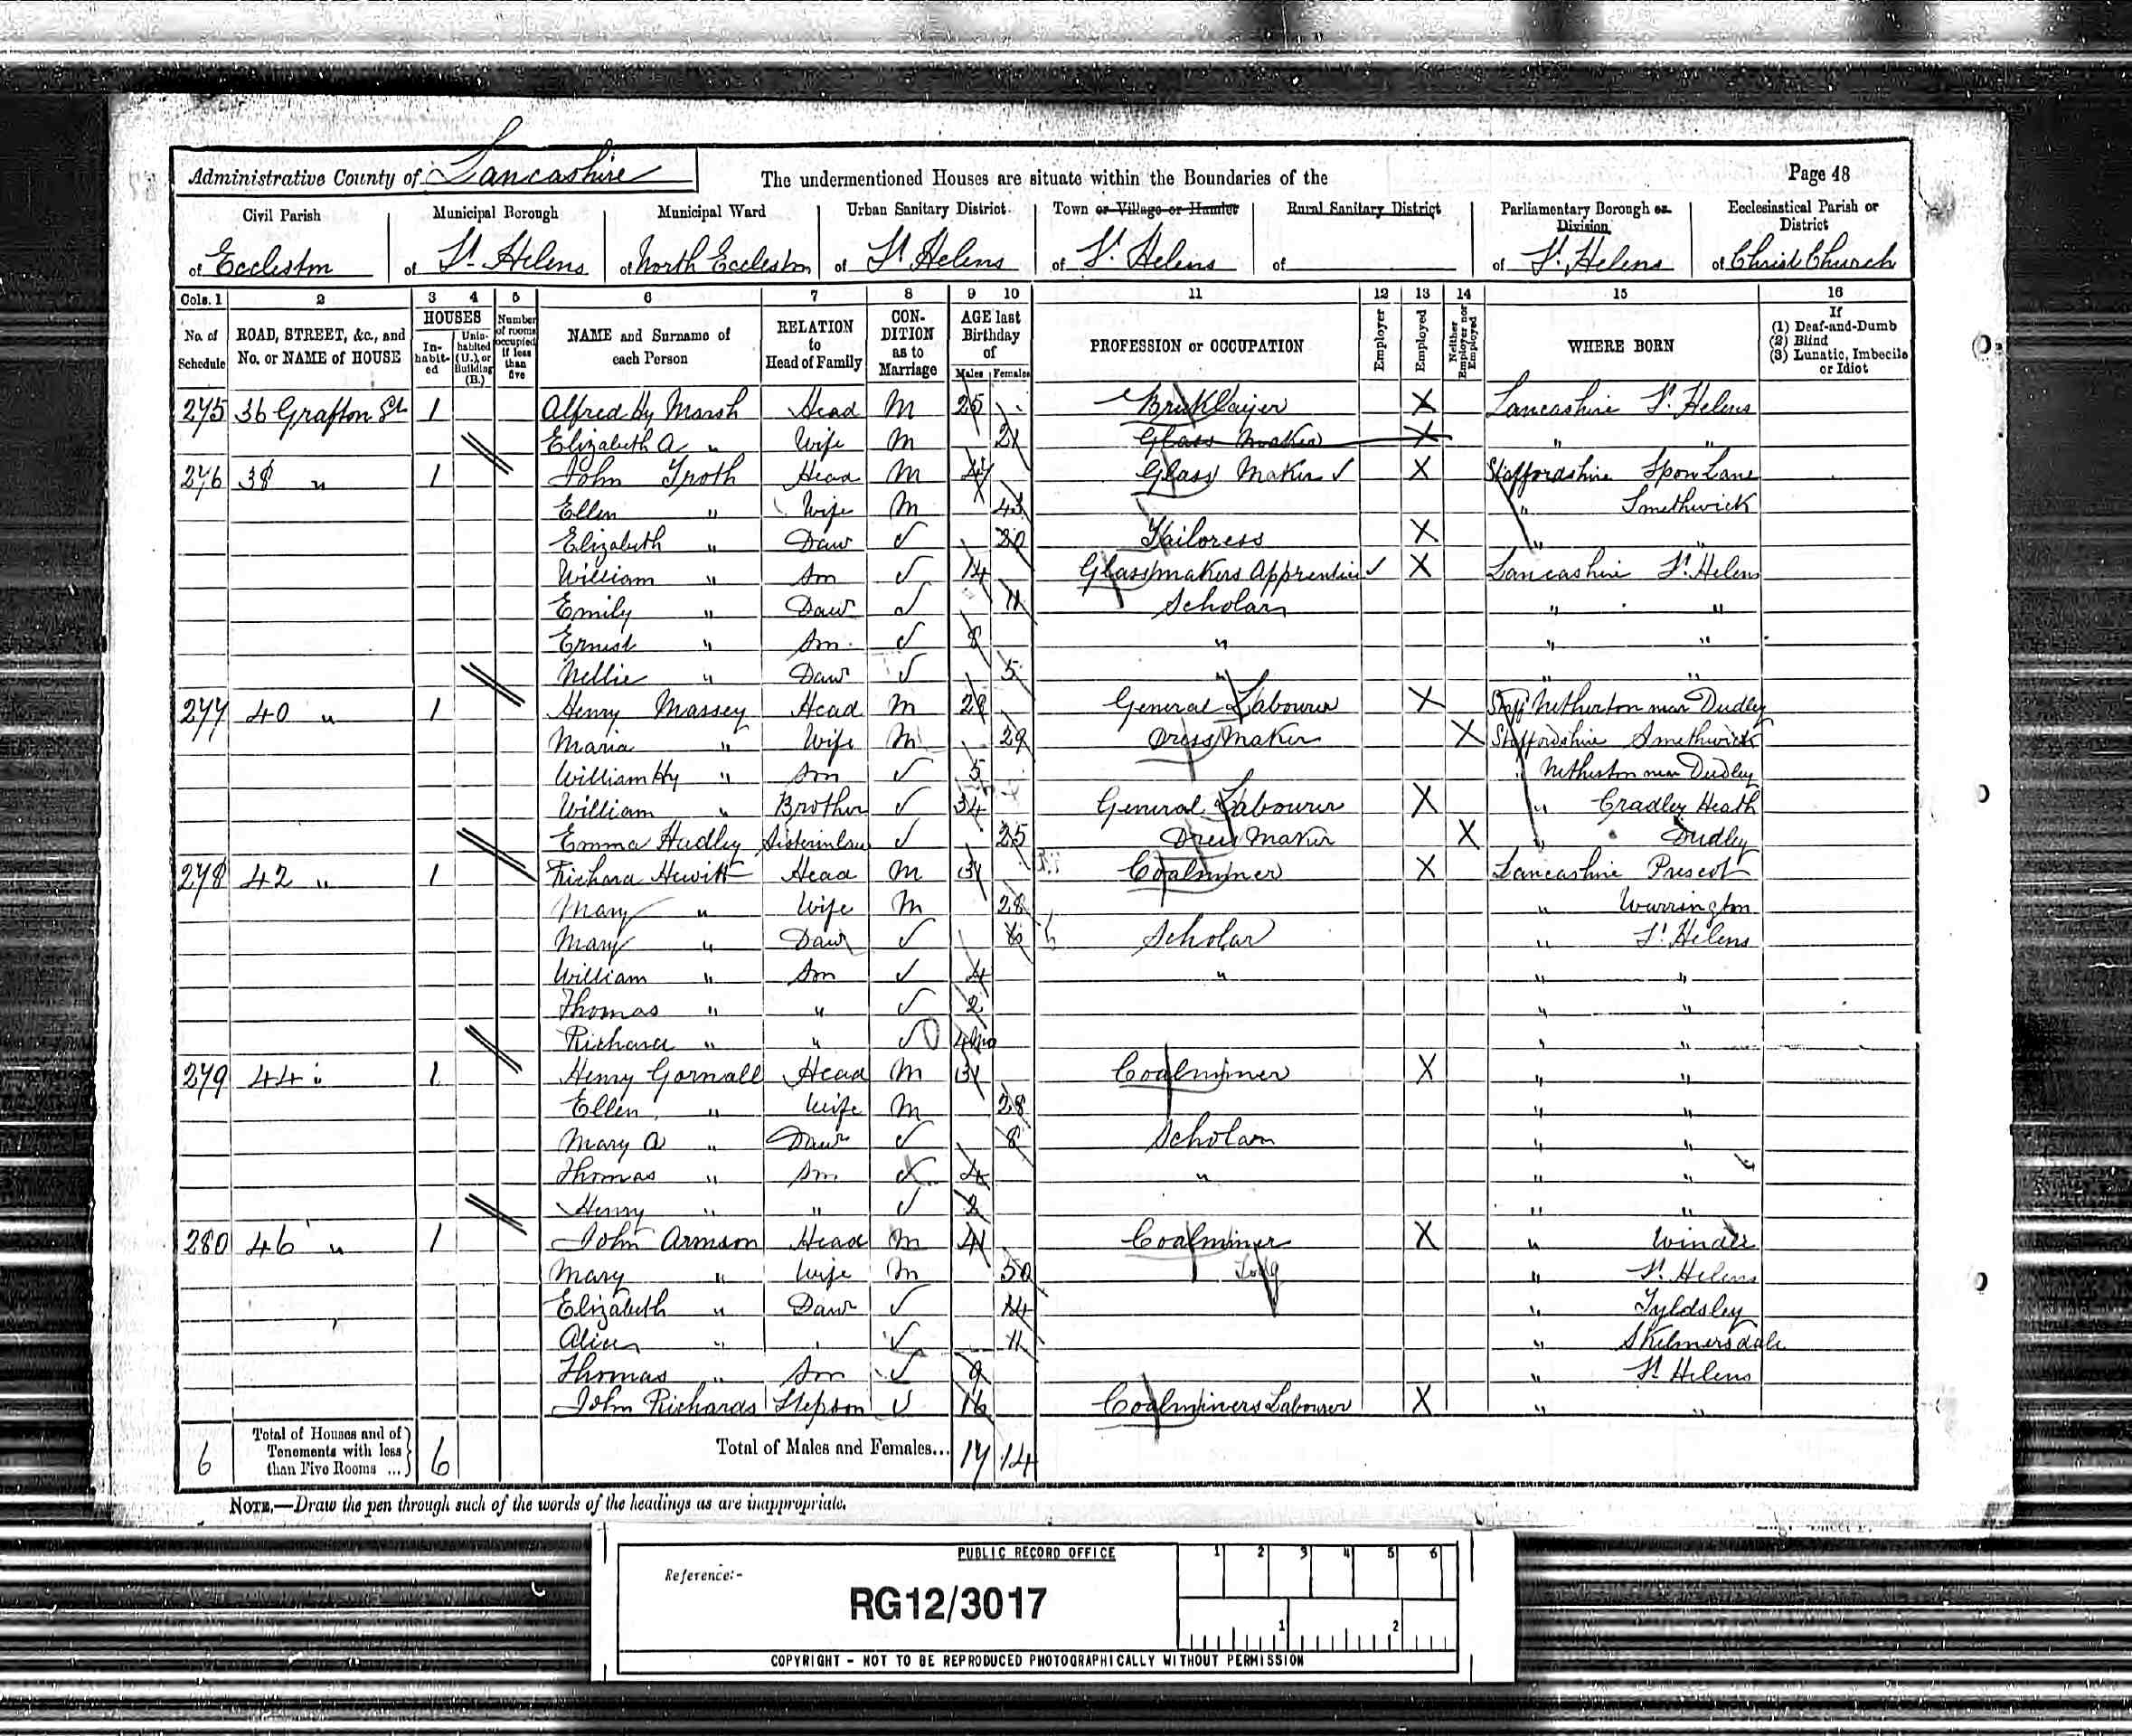 Administrative County of Lancashire The undermentioned Houses are situate within the Boundaries of the Page 48
Civil Parish Municipal Borough Municipal Ward Urban Sanitary District Town or Village or Hamlet Rural Sanitary District Parliamentary Borough or Division Ecclesiastical Parish or District
of Eccleston of St. Helens of North Eccleston of St Helens of St. Helens of of St. Helens of Christ Church
Cols. 1 2 3 4 5 6 7 8 9 10 11 12 13 14 15 16
No. of Schedule ROAD, STREET, &c., and No. or NAME of HOUSE HOUSES Inhabited Uninhabited (U.), or Building (B.) Number of rooms occupied if less than five NAME and Surname of each Person RELATION to Head of Family CONDITION as to Marriage AGE last Birthday of Males Females PROFESSION or OCCUPATION Employer Employed Neither Employer nor Employed WHERE BORN If (1) Deaf-and-Dumb (2) Blind (3) Lunatic, Imbecile or Idiot
275 36 Grafton St 1 Alfred Hy Marsh Head M 25 Bricklayer X Lancashire St. Helens
Elizabeth A " Wife M 21 Glass Maker X " "
276 38 " 1 John Troth Head M 47 Glass Maker ✓ X Staffordshire Spon Lane
Ellen " Wife M 43 " Smethwick
Elizabeth " Daur ✓ 20 Tailoress X " "
William " Son ✓ 14 Glassmakers Apprentice ✓ X Lancashire St. Helens
Emily " Daur ✓ 11 Scholar " "
Ernest " Son ✓ 8 " " "
Nellie " Daur ✓ 5 " " "
277 40 " 1 Henry Massey Head M 29 General Labourer X Staff Netherton near Dudley
Maria " Wife M 29 Dress Maker X Staffordshire Smethwick
William Hy " Son ✓ 5 " Netherton near Dudley
William " Brother ✓ 34 General Labourer X " Cradley Heath
Emma Hadley Sisterinlaw ✓ 25 Dress Maker X " Dudley
278 42 " 1 Richard Hewitt Head M 31 Coalminer X Lancashire Prescot
Mary " Wife M 28 " Warrington
Mary " Daur ✓ 6 Scholar " St. Helens
William " Son ✓ 4 " " "
Thomas " " ✓ 2 " "
Richard " " ✓ 4mo " "
279 44 " 1 Henry Gornall Head M 31 Coalminer X " "
Ellen " Wife M 28 " "
Mary A " Daur ✓ 8 Scholar " "
Thomas " Son ✓ 4 " " "
Henry " " ✓ 2 " "
280 46 " 1 John Armson Head M 41 Coalminer X " Windle
Mary " Wife M 50 " St. Helens
Elizabeth " Daur ✓ 14 " Tyldsley
Alice " " ✓ 11 " Skelmersdale
Thomas " Son ✓ 9 " St Helens
John Richards Stepson ✓ 16 Coalminers Labourer X " "
6 Total of Houses and of Tenements with less than Five Rooms ... 6 Total of Males and Females... 17 14
NOTE.—Draw the pen through such of the words of the headings as are inappropriate.
PUBLIC RECORD OFFICE 1 2 3 4 5 6
Reference:-
RG12/3017
1 2
COPYRIGHT - NOT TO BE REPRODUCED PHOTOGRAPHICALLY WITHOUT PERMISSION